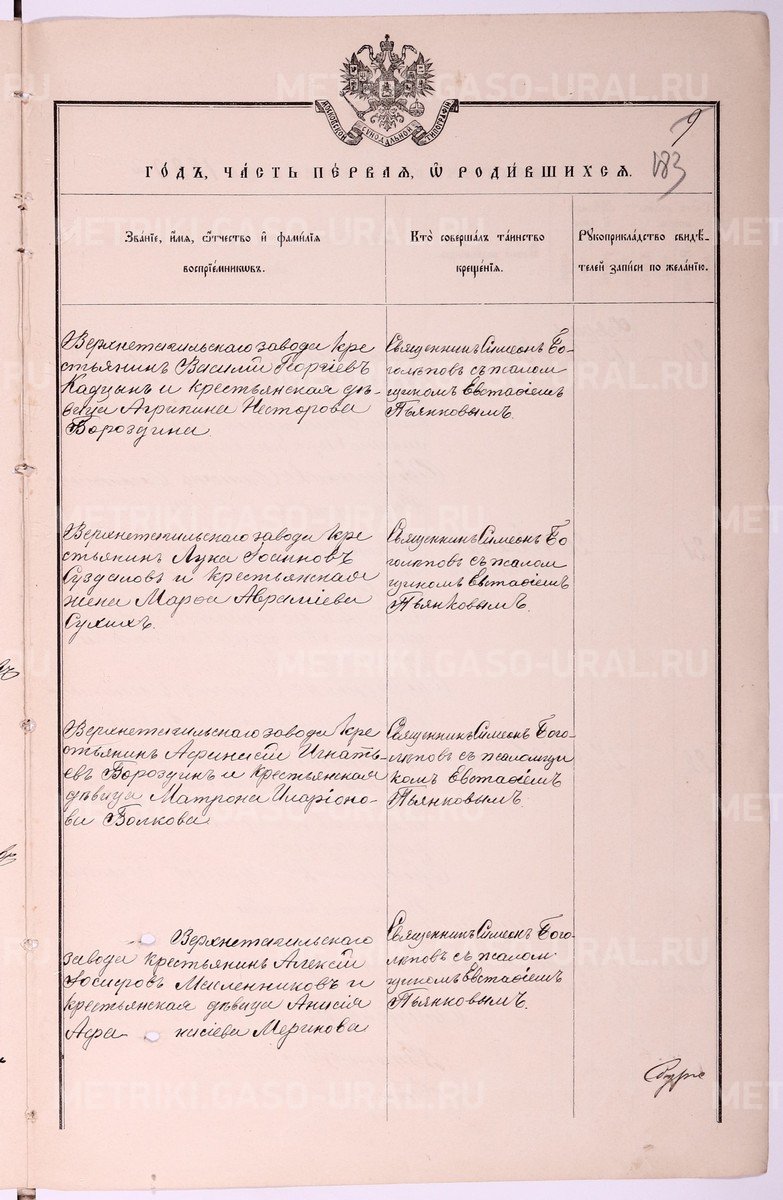 МОСКОВСКОЙ СѴНОДАЛЬНОЙ ТИПОГРАФІИ
9
183
ГО́ДЪ, ЧА́СТЬ ПЕ́РВАЯ, Ѽ РОДИ́ВШИХСЯ.
Зва́нїе, и҆́мя, ѻ҆́тчество и҆ фами́лїя
воспрїе́мникѡвъ.
Кто̀ соверша́лъ та́инство
креще́нїя.
Рꙋкоприкла́дство свидѣ́-
телей за́писи по жела́нїю.
Верхнетагильскаго завода кре
стьянинъ Василій Георгіевъ
Кадцынъ и крестьянская дѣ-
вица Агрипина Несторова
Бороздина
Священникъ Симеонъ Бо-
голѣповъ съ псалом
щикомъ Евстафіемъ
Пьянковымъ.
Верхнетагильскаго завода кре
стьянинъ Лука Іоанновъ
Суздаловъ и крестьянская
жена Марѳа Аврамiева
Сухихъ.
Священникъ Симеонъ Бо
голѣповъ съ псалом
щикомъ Евстафіемъ
Пьянковымъ.
Верхнетагильскаго завода кре
стьянинъ Афанасій Игнать-
евъ Бороздинъ и крестьянская
дѣвица Матрона Иларіоно-
ва Волкова
Священникъ Симеонъ Бого-
лѣповъ съ псаломщи
комъ Евстафіемъ
Пьянковымъ.
Верхнетагильскаго
завода крестьянинъ Алексій
Іосифовъ Масленниковъ и
крестьянская дѣвица Анисія
Афа насіева Меринова
Священникъ Симеонъ Бого-
лѣповъ съ псалом
щикомъ Евстафіемъ
Пьянковымъ.
METRIKI.GASO-URAL.RU